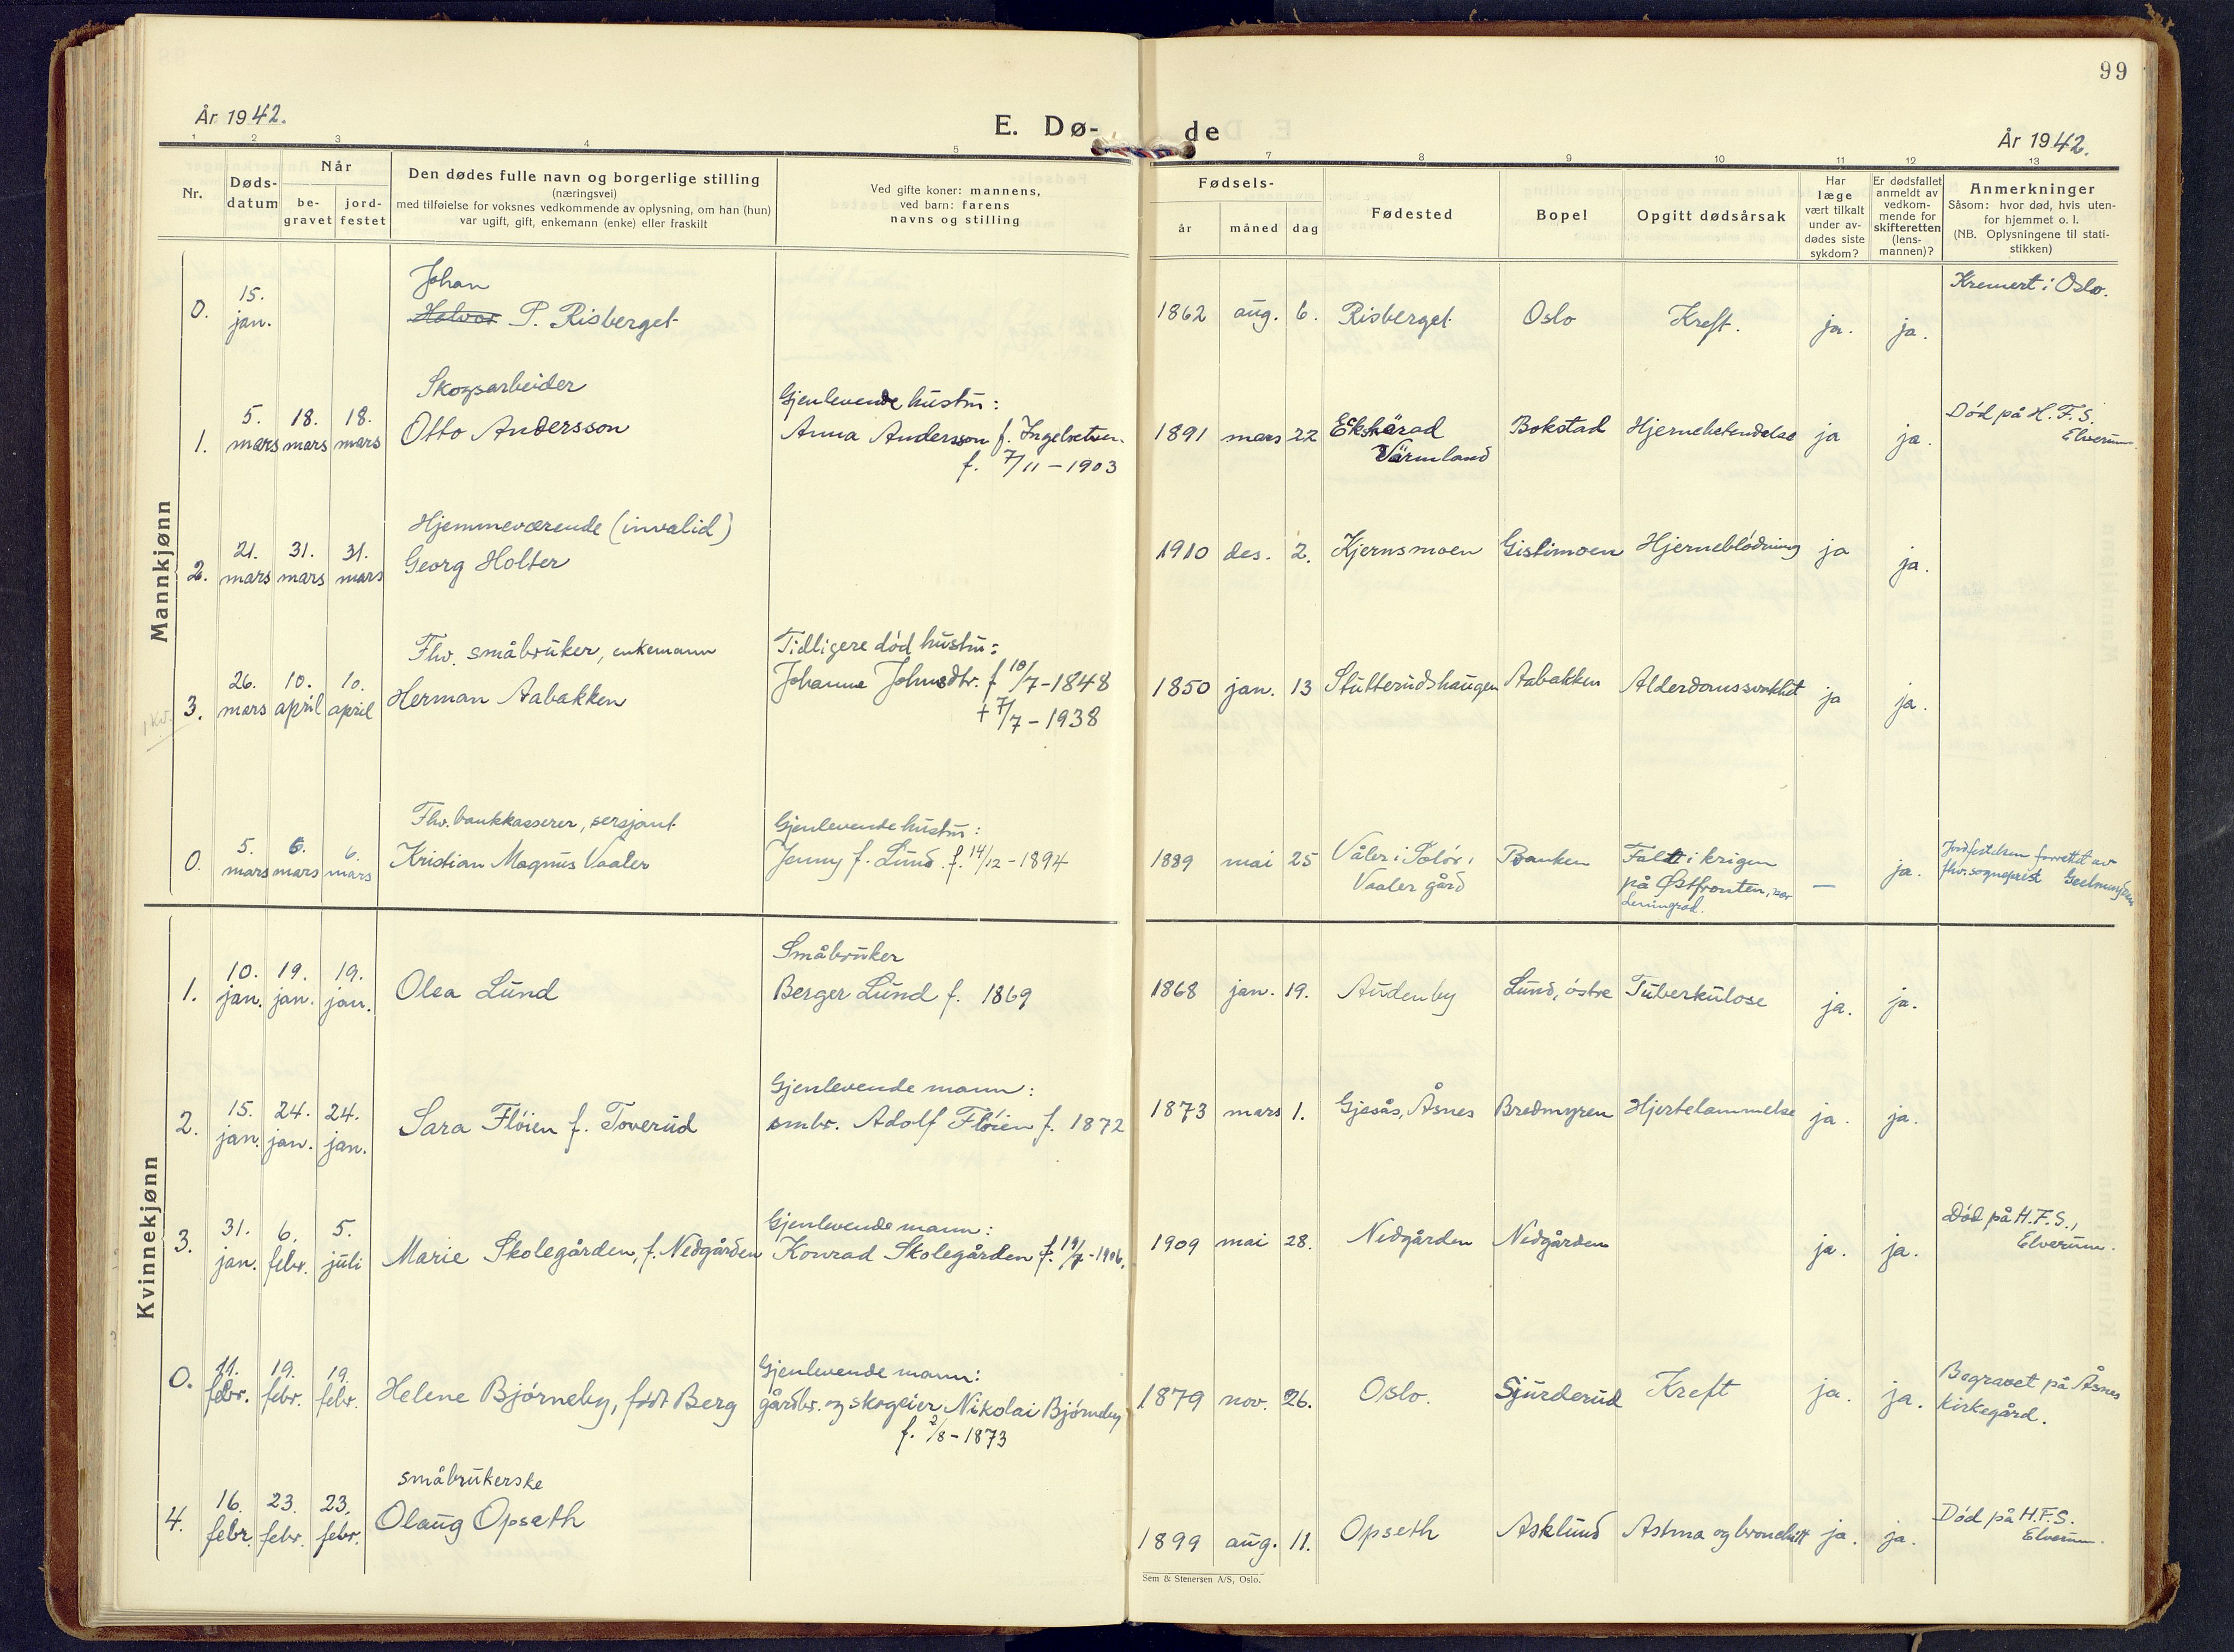 99
År 1942.
E. Dø-
de
År 1942.
1 2 3 4 5 7 8 9 10 11 12 13
Nr.
Døds-
datum
Når
be-
gravet
jord-
festet
Den dødes fulle navn og borgerlige stilling
(næringsvei)
med tilføielse for voksnes vedkommende av oplysning, om han (hun)
var ugift, gift, enkemann (enke) eller fraskilt
Ved gifte koner: mannens,
ved barn: farens
navns og stilling
Fødsels-
år måned dag
Fødested
Bopel
Opgitt dødsårsak
Har
læge
vært tilkalt
under av-
dødes siste
sykdom?
Er dødsfallet
anmeldt av
vedkom-
mende for
skifteretten
(lens-
mannen)?
Anmerkninger
Såsom: hvor død, hvis uten-
for hjemmet o. l.
(NB. Oplysningene til stati-
stikken)
Mannkjønn
0.
15.
jan.
Johan
Halvor P. Risberget
1862 aug. 6. Risberget Oslo Kreft. ja. ja.
Kremert i Oslo.
1.
5.
mars
18.
mars
18.
mars
Skogsarbeider
Otto Andersson
Gjenlevende hustru:
Anna Andersson f. Ingelsetsen
f. 7/11 - 1903
1891 mars 22
Ekshärad
Värmland
Bokstad Hjernebetendelse ja ja.
Död på H.F.S.
Elverum
2.
21.
mars
31.
mars
31.
mars
Hjemmeværende (invalid)
Georg Holter
1910 des. 2. Kjernsmoen Gistimoen Hjerneblödning ja ja.
1 Kv.
3.
26.
mars
10.
april
10.
april
Fhv. småbruker, enkemann
Herman Aabakken
Tidligere död hustru:
Johanne Johnsdtr. f 10/7 - 1848
+ 7/7 - 1938
1850 jan. 13 Stutterudshaugen Aabakken Alderdomssvakhet ja ja.
0.
5.
mars
6.
mars
6.
mars
Fhv. bankkasserer, sersjant
Kristian Magnus Vaaler
Gjenlevende hustru:
Jenny f. Lund. f. 14/12 - 1894
1889 mai 25
Våler i Solör,
Vaaler gård
Banken
Falt i krigen
på Østfronten, ved
Leningrad.
— ja.
Jordfestelsen forrettet av
fhv. sogneprest Geelmuyden
Kvinnekjønn
1.
10.
jan.
19.
jan.
19.
jan.
Olea Lund
Småbruker
Berger Lund f. 1869
1868 jan. 19. Audenby Lund, östre Tuberkulose ja. ja.
2.
15.
jan.
24.
jan.
24.
jan.
Sara Flöien f. Toverud
Gjenlevende mann:
smbr. Adolf Flöien f. 1872
1873 mars 1. Gjesås, Åsnes Bredmyren Hjertelammelse ja. ja.
3.
31.
jan.
6.
febr.
5.
juli
Marie Skolegården, f. Nedgården
Gjenlevende mann:
Konrad Skolegården f. 19/7 - 1906.
1909 mai 28. Nedgården Nedgården ja. ja.
Död på H.F.S.,
Elverum.
0.
11.
febr.
19.
febr.
19.
febr.
Helene Björneby, født Berg
Gjenlevende mann:
gårdbr. og skogeier Nikolai Björneby
f. 2/8 - 1873
1879 nov. 26. Oslo. Sjurderud Kreft ja. ja.
Begravet på Åsnes
kirkegård.
4.
16.
febr.
23.
febr.
23.
febr.
småbrukerske
Olaug Opseth
1899 aug. 11. Opseth Asklund Astma og bronchitt ja. ja.
Död på H.F.S.
Elverum.
Sem & Stenersen A/S, Oslo.